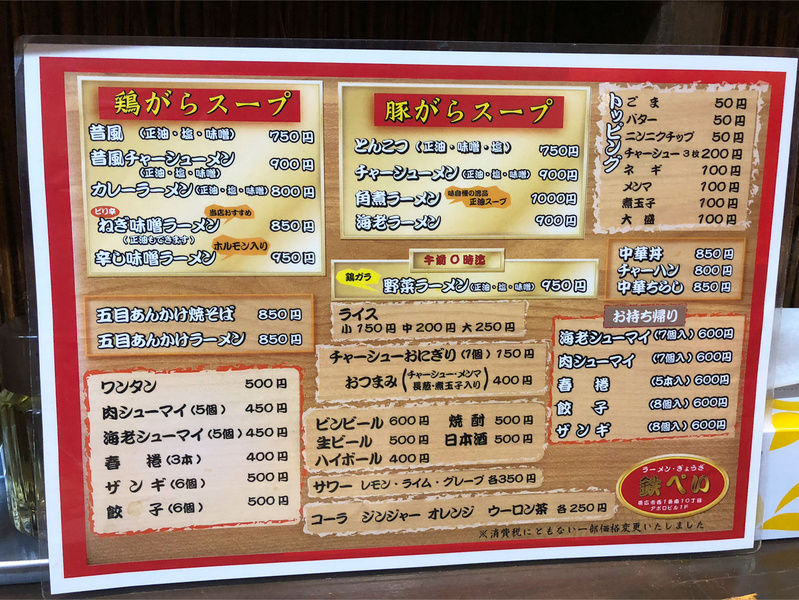 鶏がらスープ
昔風（正油・塩・味噌） 750円
昔風チャーシューメン
（正油・塩・味噌） 900円
カレーラーメン（正油・塩・味噌） 800円
ピリ辛
当店おすすめ
ねぎ味噌ラーメン 850円
（正油もできます）
ホルモン入り
辛し味噌ラーメン 950円
豚がらスープ
とんこつ（正油・味噌・塩） 750円
チャーシューメン（正油・塩・味噌） 900円
角煮ラーメン 1000円
味自慢の逸品
正油スープ
海老ラーメン 900円
トッピング
ごま 50円
バター 50円
ニンニクチップ 50円
チャーシュー3枚 200円
ネギ 100円
メンマ 100円
煮玉子 100円
大盛 100円
午前0時迄
鶏ガラ
野菜ラーメン（正油・塩・味噌） 950円
中華丼 850円
チャーハン 800円
中華ちらし 850円
五目あんかけ焼そば 850円
五目あんかけラーメン 850円
ライス
小150円 中200円 大250円
チャーシューおにぎり（1個）150円
おつまみ（チャーシュー・メンマ
長葱・煮玉子入り）400円
お持ち帰り
海老シューマイ（7個入）600円
肉シューマイ（7個入）600円
春捲（5本入）600円
餃子（8個入）600円
ザンギ（8個入）600円
ワンタン 500円
肉シューマイ（5個）450円
海老シューマイ（5個）450円
春捲（3本）400円
ザンギ（6個）500円
餃子（6個）500円
ビンビール 600円 焼酎 500円
生ビール 500円 日本酒 500円
ハイボール 400円
サワー レモン・ライム・グレープ 各350円
コーラ ジンジャー オレンジ ウーロン茶 各250円
ラーメン・ぎょうざ
鉄ぺい
帯広市西1条南10丁目
アポロビル1F
※消費税にともない一部価格変更いたしました